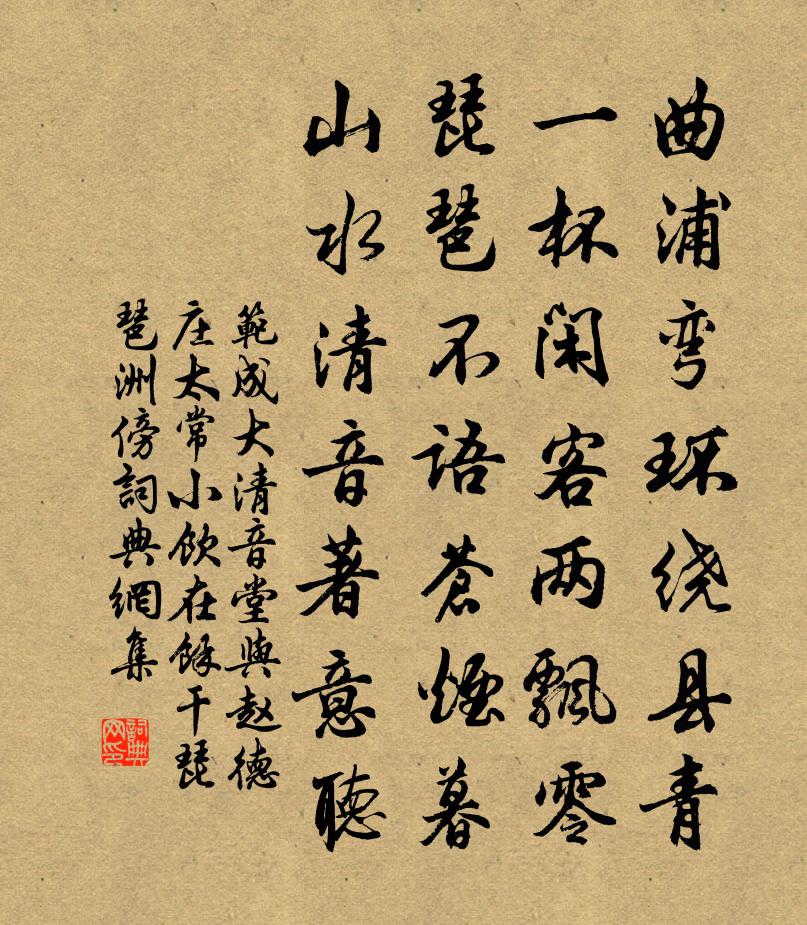 曲浦弯环绕县青
一杯闲客两飘零
琵琶不语苍煙暮
山水清音著意聴
範成大清音堂與赵德
庄太常小饮在餘干琵
琶洲傍詞典網集
詞典網印